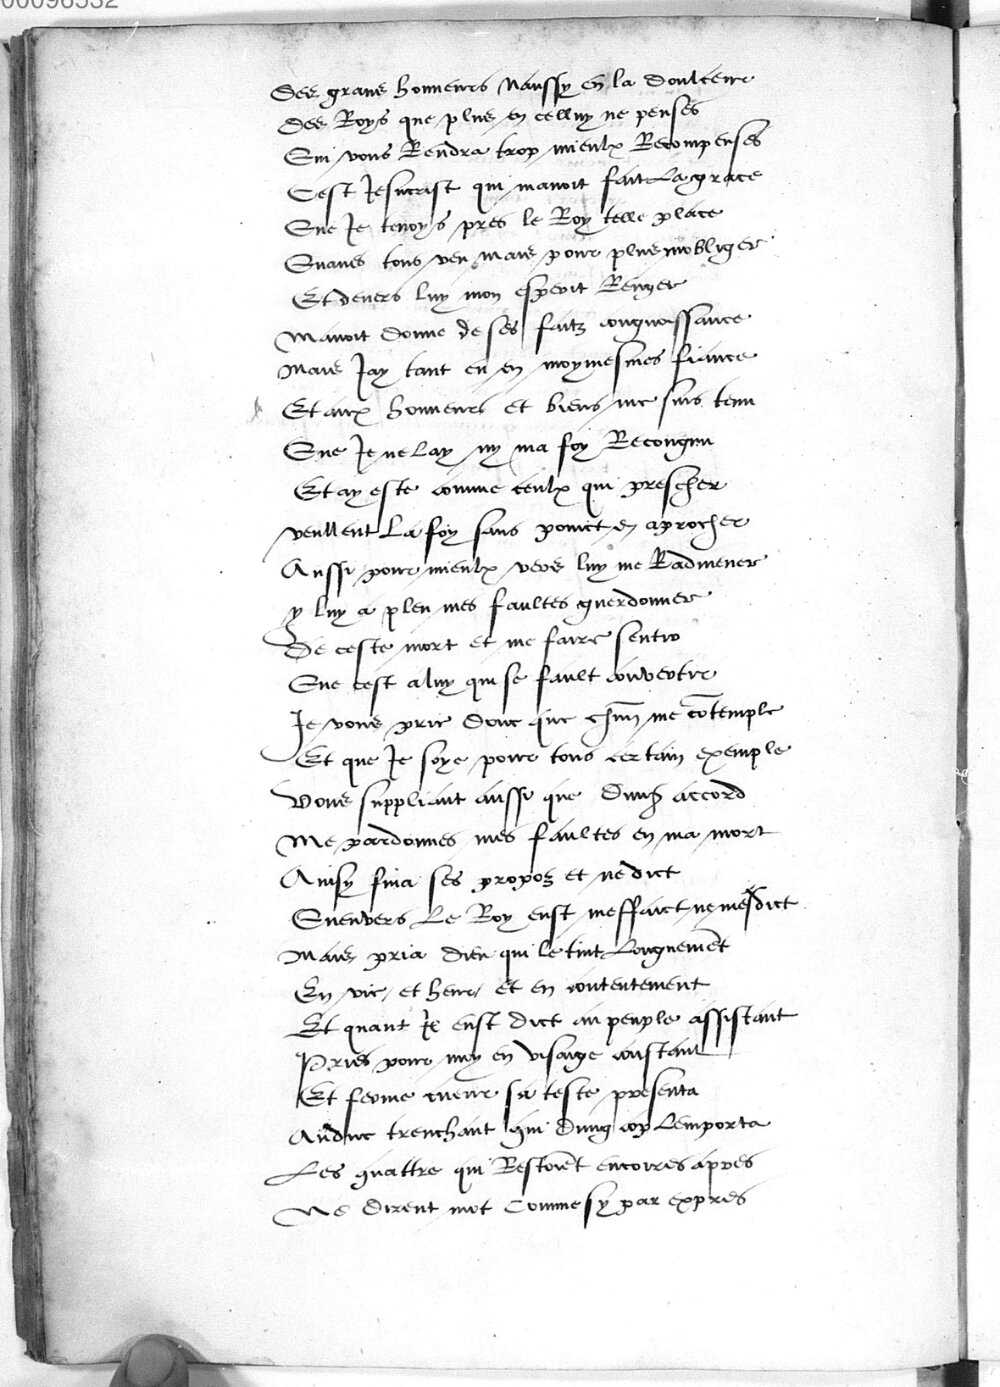 00096532
Des grans honneurs Naussy en la doulceur
Des Roys que plus en celluy ne penses
Qui vous Rendra trop mieulx Recompenses
Cest Jesucrist qui mavoit fait La grace
Que Je tenoys pres le Roy telle place
Quaves tous veu Mais pour plus mobliger
Et devers luy mon esperit Renger
Mavoit donne de ses faitz congnoissance
Mais Jay tant eu en moymesmes fiance
Et aux honneurs et biens me suis tenu
Que Je ne lay ny ma foy Recongnu
Et ay este comme ceulx qui prescher
veullent La foy sans poinct en aprocher
Aussi pour mieulx vers luy me Radmener
y luy a pleu mes faultes guerdonner
De ceste mort et me faire sentir
Que cest a luy qui se fault convertir
Je vous prie donc que chũn me cõtemple
Et que Je soye pour tous certain exemple
Vous suppliant aussi que dung accord
Me pardonnes mes faultes en ma mort
Ainsy fina ses propoz et ne dict
Quenvers Le Roy eust meffaict ne mesdict
Mais pria dieu qui le tint Longuemẽt
En vie et heur et en contentement
Et quant Il eust dict au peuple assistant
Pries pour moy en visaige constant
Et ferme cueur sa teste presenta
Au duc trenchant qui dung cop Lemporta
Les quattre qui Restoiẽt encoires apres
Ne dirent mot Comme sy par expres